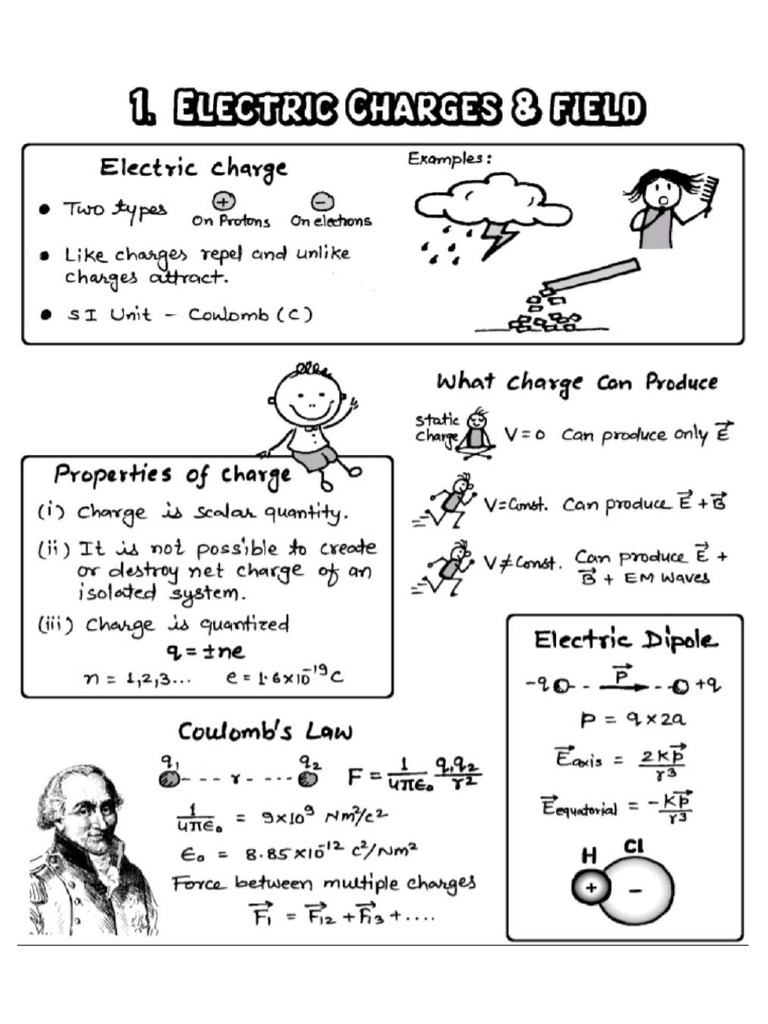 1. ELECTRIC CHARGES & FIELD
Electric charge
• Two types
+
On Protons
−
On electrons
• Like charges repel and unlike
charges attract.
• SI Unit – Coulomb (C)
Examples:
What Charge Can Produce
Static
Charge
V=0 Can produce only E⃗
V=Const. Can produce E⃗ + B⃗
V≠Const. Can produce E⃗ +
B⃗ + EM Waves
Properties of charge
(i) Charge is scalar quantity.
(ii) It is not possible to create
or destroy net charge of an
isolated system.
(iii) Charge is quantized
q = ±ne
n = 1,2,3... e = 1.6×10⁻¹⁹C
Electric Dipole
-q P⃗ +q
P = q×2a
E⃗axis = 2KP⃗/r³
E⃗equatorial = -KP⃗/r³
H Cl
+ −
Coulomb's Law
q₁ r q₂
F = 1/4πε₀ q₁q₂/r²
1/4πε₀ = 9×10⁹ Nm²/c²
ε₀ = 8.85×10⁻¹² c²/Nm²
Force between multiple charges
F⃗₁ = F⃗₁₂ + F⃗₁₃ + ....